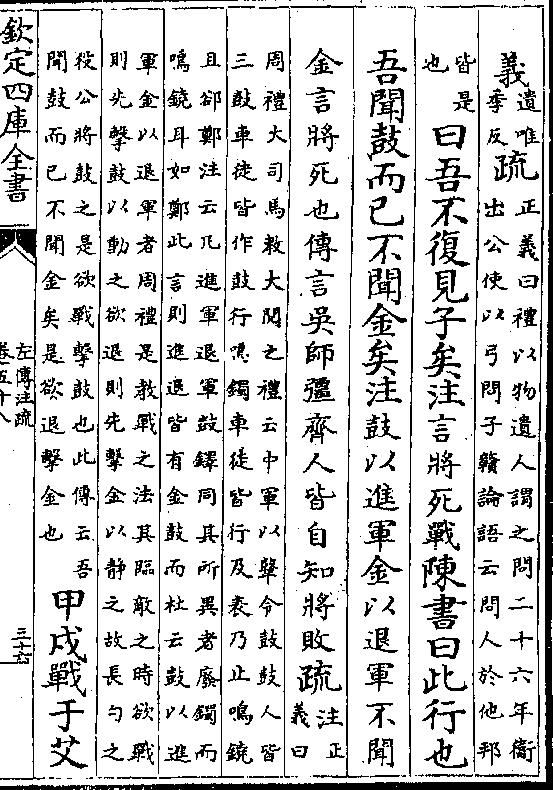 義遺唯季反疏正義曰禮以物遺人謂之問二十六年衞出公使以弓問子贛論語云問人於他邦
皆是也曰吾不復見子矣注言將死戰陳書曰此行也
吾聞鼓而已不聞金矣注鼓以進軍金以退軍不聞
金言將死也傳言吳師彊齊人皆自知將敗疏注正義曰
周禮大司馬教大閱之禮云中軍以鼙令鼓鼓人皆
三鼓車徒皆作鼓行鳴鐲車徒皆行及表乃止鳴鐃
且卻鄭注云凡進軍退軍鼓鐸同其所異者廢鐲而
鳴鐃耳如鄭此言則進退皆有金鼓而杜云鼓以進
軍金以退軍者周禮是教戰之法其臨敵之時欲戰
則先擊鼓以動之欲退則先擊金以静之故長勺之
役公將鼓之是欲戰擊鼓也此傳云吾
聞鼓而已不聞金矣是欲退擊金也甲戌戰于艾
欽定四庫全書
左傳注疏
卷五十八
三十六